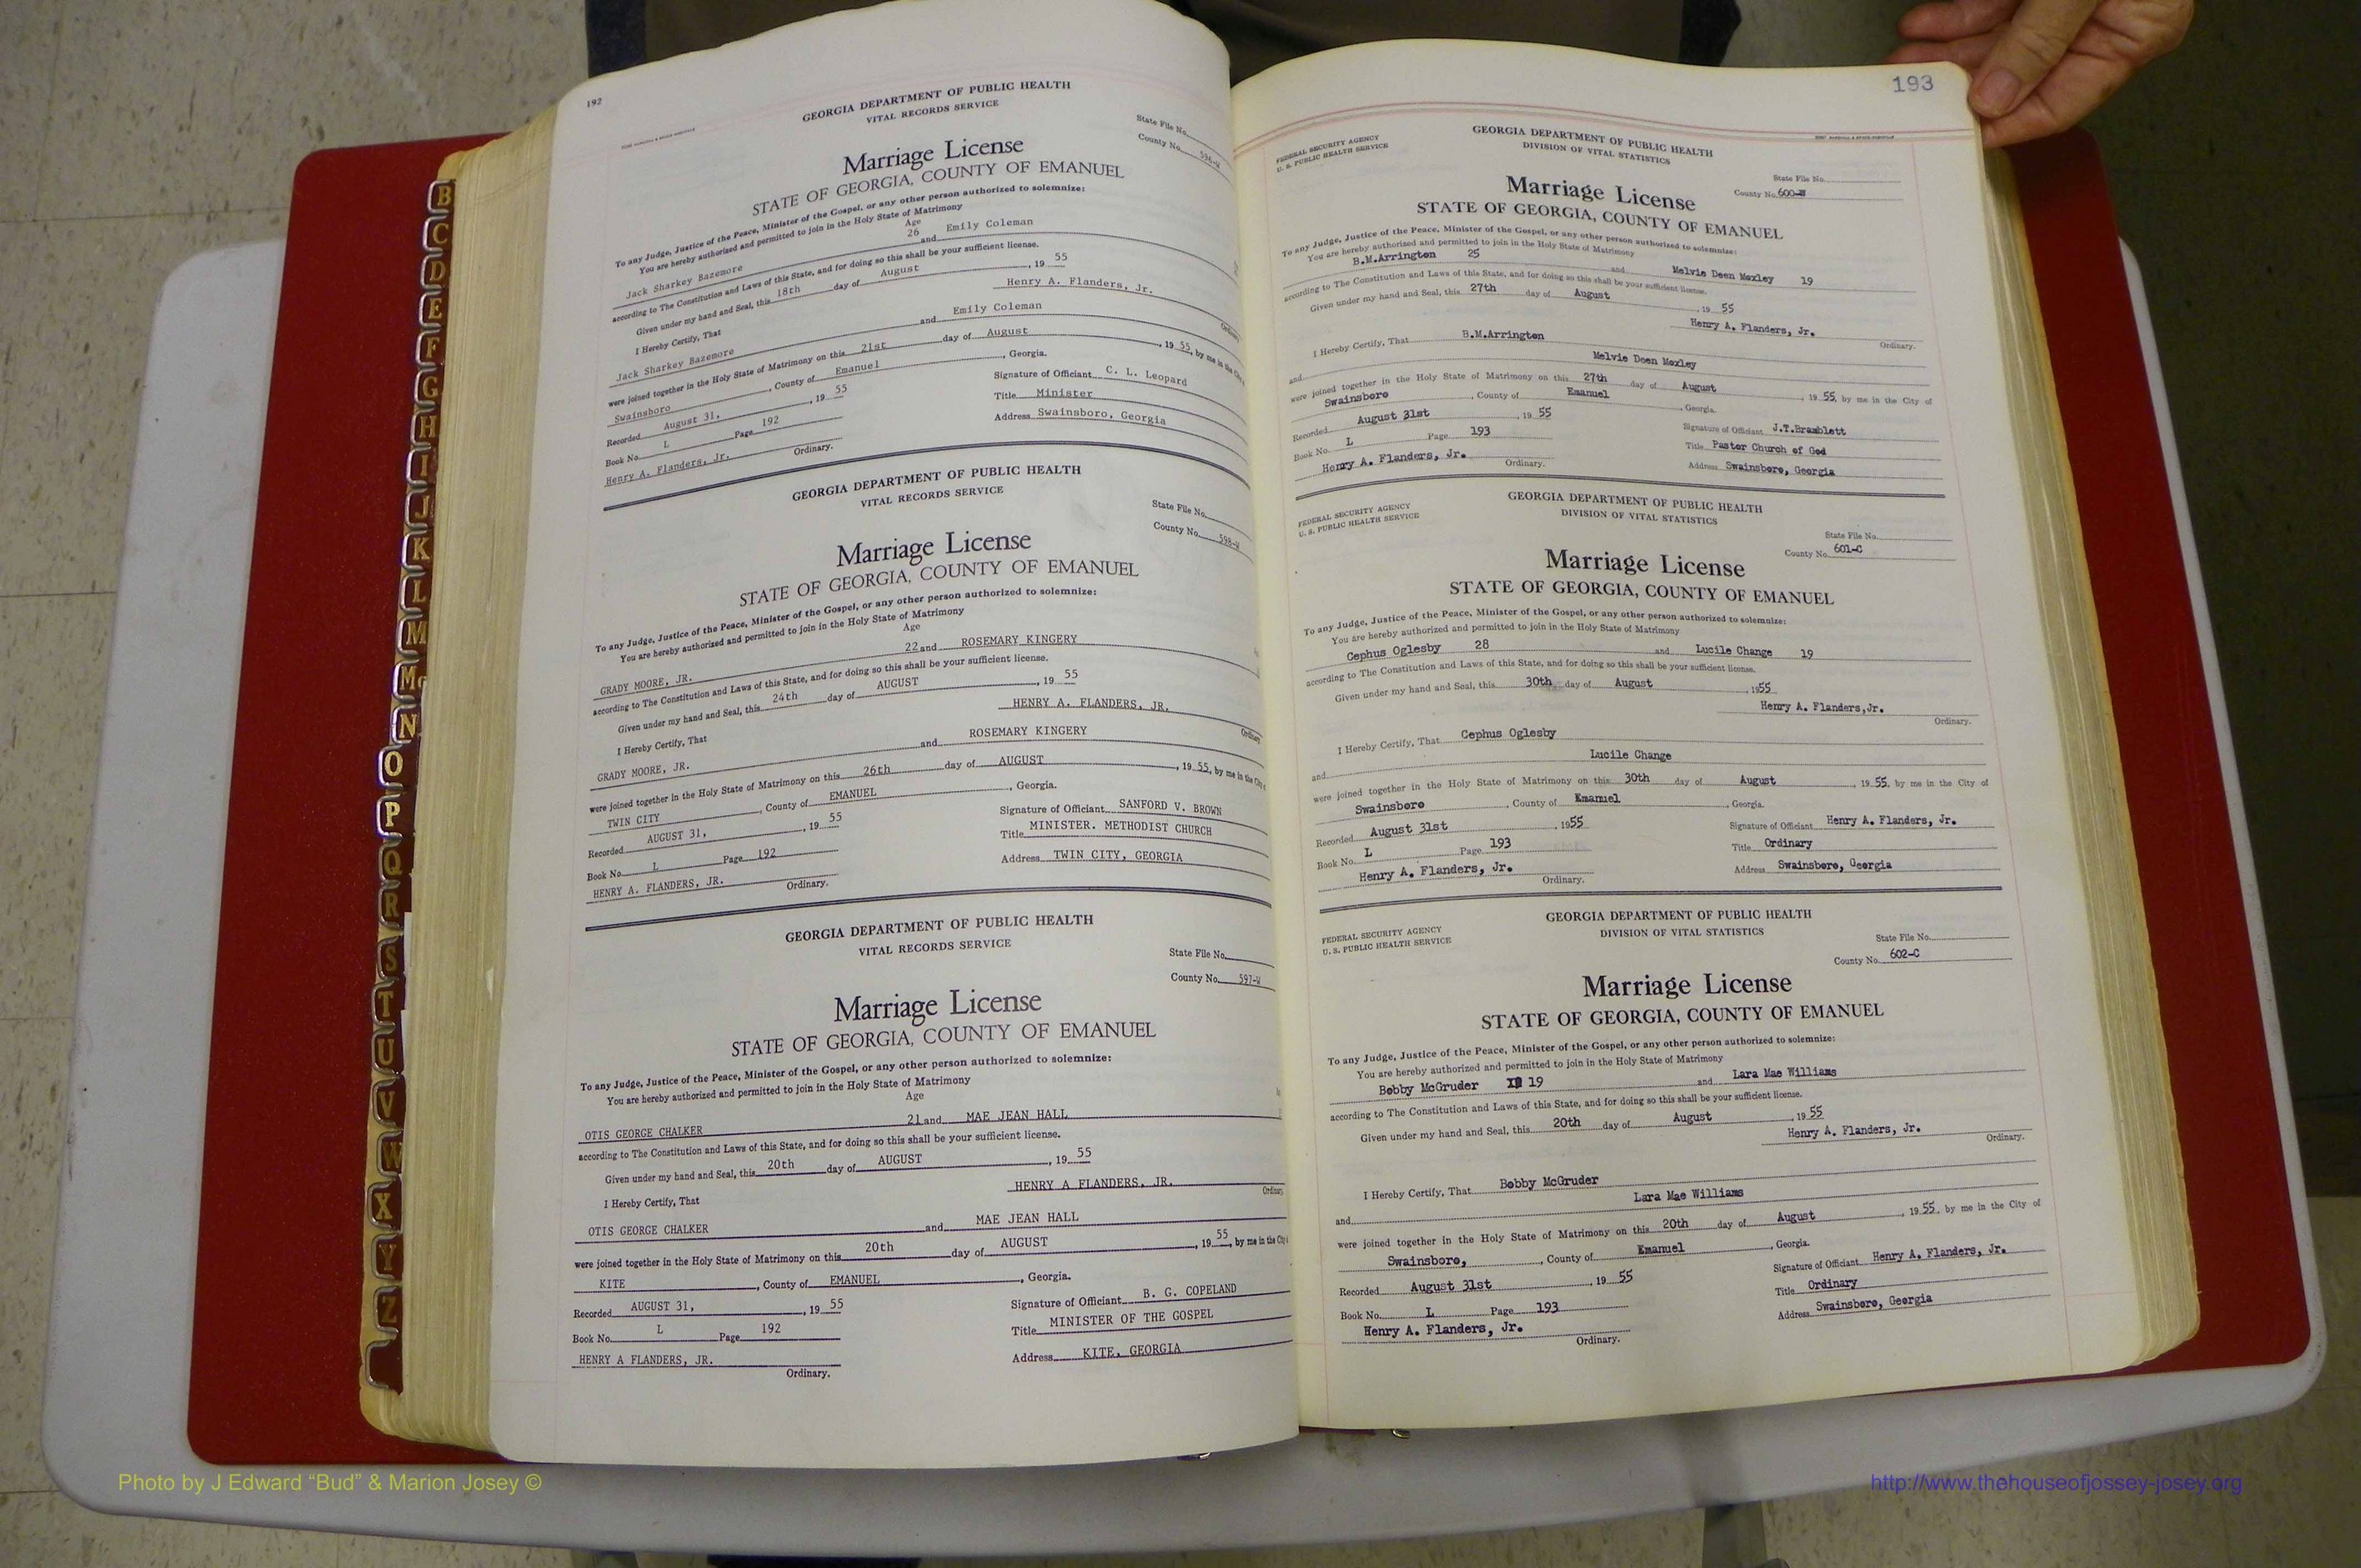 192
GEORGIA DEPARTMENT OF PUBLIC HEALTH
VITAL RECORDS SERVICE
State File No.
County No. 596-W
Marriage License
STATE OF GEORGIA, COUNTY OF EMANUEL
To any Judge, Justice of the Peace, Minister of the Gospel, or any other person authorized to solemnize:
You are hereby authorized and permitted to join in the Holy State of Matrimony
Age
Jack Sharkey Bazemore 26 and Emily Coleman
according to The Constitution and Laws of this State, and for doing so this shall be your sufficient license.
Given under my hand and Seal, this 18th day of August, 19 55
Henry A. Flanders, Jr.
Ordinary
I Hereby Certify, That
Jack Sharkey Bazemore and Emily Coleman
were joined together in the Holy State of Matrimony on this 21st day of August, 19 55, by me in the City
Swainsboro, County of Emanuel, Georgia.
Recorded August 31, 19 55
Signature of Officiant C. L. Leopard
Book No. L Page 192
Title Minister
Henry A. Flanders, Jr. Ordinary.
Address Swainsboro, Georgia
GEORGIA DEPARTMENT OF PUBLIC HEALTH
VITAL RECORDS SERVICE
State File No.
County No. 598-W
Marriage License
STATE OF GEORGIA, COUNTY OF EMANUEL
To any Judge, Justice of the Peace, Minister of the Gospel, or any other person authorized to solemnize:
You are hereby authorized and permitted to join in the Holy State of Matrimony
Age
GRADY MOORE, JR. 22 and ROSEMARY KINGERY
according to The Constitution and Laws of this State, and for doing so this shall be your sufficient license.
Given under my hand and Seal, this 24th day of AUGUST, 19 55
HENRY A. FLANDERS, JR.
Ordinary
I Hereby Certify, That
GRADY MOORE, JR. and ROSEMARY KINGERY
were joined together in the Holy State of Matrimony on this 26th day of AUGUST, 19 55, by me in the City
TWIN CITY, County of EMANUEL, Georgia.
Recorded AUGUST 31, 19 55
Signature of Officiant SANFORD V. BROWN
Book No. L Page 192
Title MINISTER. METHODIST CHURCH
HENRY A. FLANDERS, JR. Ordinary.
Address TWIN CITY, GEORGIA
GEORGIA DEPARTMENT OF PUBLIC HEALTH
VITAL RECORDS SERVICE
State File No.
County No. 597-W
Marriage License
STATE OF GEORGIA, COUNTY OF EMANUEL
To any Judge, Justice of the Peace, Minister of the Gospel, or any other person authorized to solemnize:
You are hereby authorized and permitted to join in the Holy State of Matrimony
Age
OTIS GEORGE CHALKER 21 and MAE JEAN HALL
according to The Constitution and Laws of this State, and for doing so this shall be your sufficient license.
Given under my hand and Seal, this 20th day of AUGUST, 19 55
HENRY A FLANDERS, JR.
Ordinary
I Hereby Certify, That
OTIS GEORGE CHALKER and MAE JEAN HALL
were joined together in the Holy State of Matrimony on this 20th day of AUGUST, 19 55, by me in the City
KITE, County of EMANUEL, Georgia.
Recorded AUGUST 31, 19 55
Signature of Officiant B. G. COPELAND
Book No. L Page 192
Title MINISTER OF THE GOSPEL
HENRY A FLANDERS, JR.
Ordinary.
Address KITE, GEORGIA
193
FEDERAL SECURITY AGENCY
U. S. PUBLIC HEALTH SERVICE
GEORGIA DEPARTMENT OF PUBLIC HEALTH
DIVISION OF VITAL STATISTICS
State File No.
County No. 600-W
Marriage License
STATE OF GEORGIA, COUNTY OF EMANUEL
To any Judge, Justice of the Peace, Minister of the Gospel, or any other person authorized to solemnize:
You are hereby authorized and permitted to join in the Holy State of Matrimony
B.M.Arrington 25 and Melvie Deen Moxley 19
according to The Constitution and Laws of this State, and for doing so this shall be your sufficient license.
Given under my hand and Seal, this 27th day of August, 19 55
Henry A. Flanders, Jr.
Ordinary.
I Hereby Certify, That B.M.Arrington
and Melvie Deen Moxley
were joined together in the Holy State of Matrimony on this 27th day of August, 19 55, by me in the City of
Swainsboro, County of Emanuel, Georgia.
Recorded August 31st, 19 55
Signature of Officiant J.T.Bramblett
Book No. L Page 193
Title Pastor Church of God
Henry A. Flanders, Jr. Ordinary.
Address Swainsboro, Georgia
FEDERAL SECURITY AGENCY
U. S. PUBLIC HEALTH SERVICE
GEORGIA DEPARTMENT OF PUBLIC HEALTH
DIVISION OF VITAL STATISTICS
State File No.
County No. 601-C
Marriage License
STATE OF GEORGIA, COUNTY OF EMANUEL
To any Judge, Justice of the Peace, Minister of the Gospel, or any other person authorized to solemnize:
You are hereby authorized and permitted to join in the Holy State of Matrimony
Cephus Oglesby 28 and Lucile Change 19
according to The Constitution and Laws of this State, and for doing so this shall be your sufficient license.
Given under my hand and Seal, this 30th day of August, 1955
Henry A. Flanders,Jr.
Ordinary.
I Hereby Certify, That Cephus Oglesby
and Lucile Change
were joined together in the Holy State of Matrimony on this 30th day of August, 19 55, by me in the City of
Swainsboro, County of Emanuel, Georgia.
Recorded August 31st, 1955
Signature of Officiant Henry A. Flanders, Jr.
Book No. L Page 193
Title Ordinary
Henry A. Flanders, Jr. Ordinary.
Address Swainsboro, Georgia
FEDERAL SECURITY AGENCY
U. S. PUBLIC HEALTH SERVICE
GEORGIA DEPARTMENT OF PUBLIC HEALTH
DIVISION OF VITAL STATISTICS
State File No.
County No. 602-C
Marriage License
STATE OF GEORGIA, COUNTY OF EMANUEL
To any Judge, Justice of the Peace, Minister of the Gospel, or any other person authorized to solemnize:
You are hereby authorized and permitted to join in the Holy State of Matrimony
Bobby McGruder 19 and Lara Mae Williams
according to The Constitution and Laws of this State, and for doing so this shall be your sufficient license.
Given under my hand and Seal, this 20th day of August, 19 55
Henry A. Flanders, Jr.
Ordinary.
I Hereby Certify, That Bobby McGruder
and Lara Mae Williams
were joined together in the Holy State of Matrimony on this 20th day of August, 19 55, by me in the City of
Swainsboro, County of Emanuel, Georgia.
Recorded August 31st, 19 55
Signature of Officiant Henry A. Flanders, Jr.
Book No. L Page 193
Title Ordinary
Henry A. Flanders, Jr.
Ordinary.
Address Swainsboro, Georgia
B
C
D
E
F
G
H
I
J
K
L
M
Mc
N
O
P
Q
R
S
T
U
V
W
X
Y
Z
Photo by J Edward “Bud” & Marion Josey ©
http://www.thehouseofjossey-josey.org